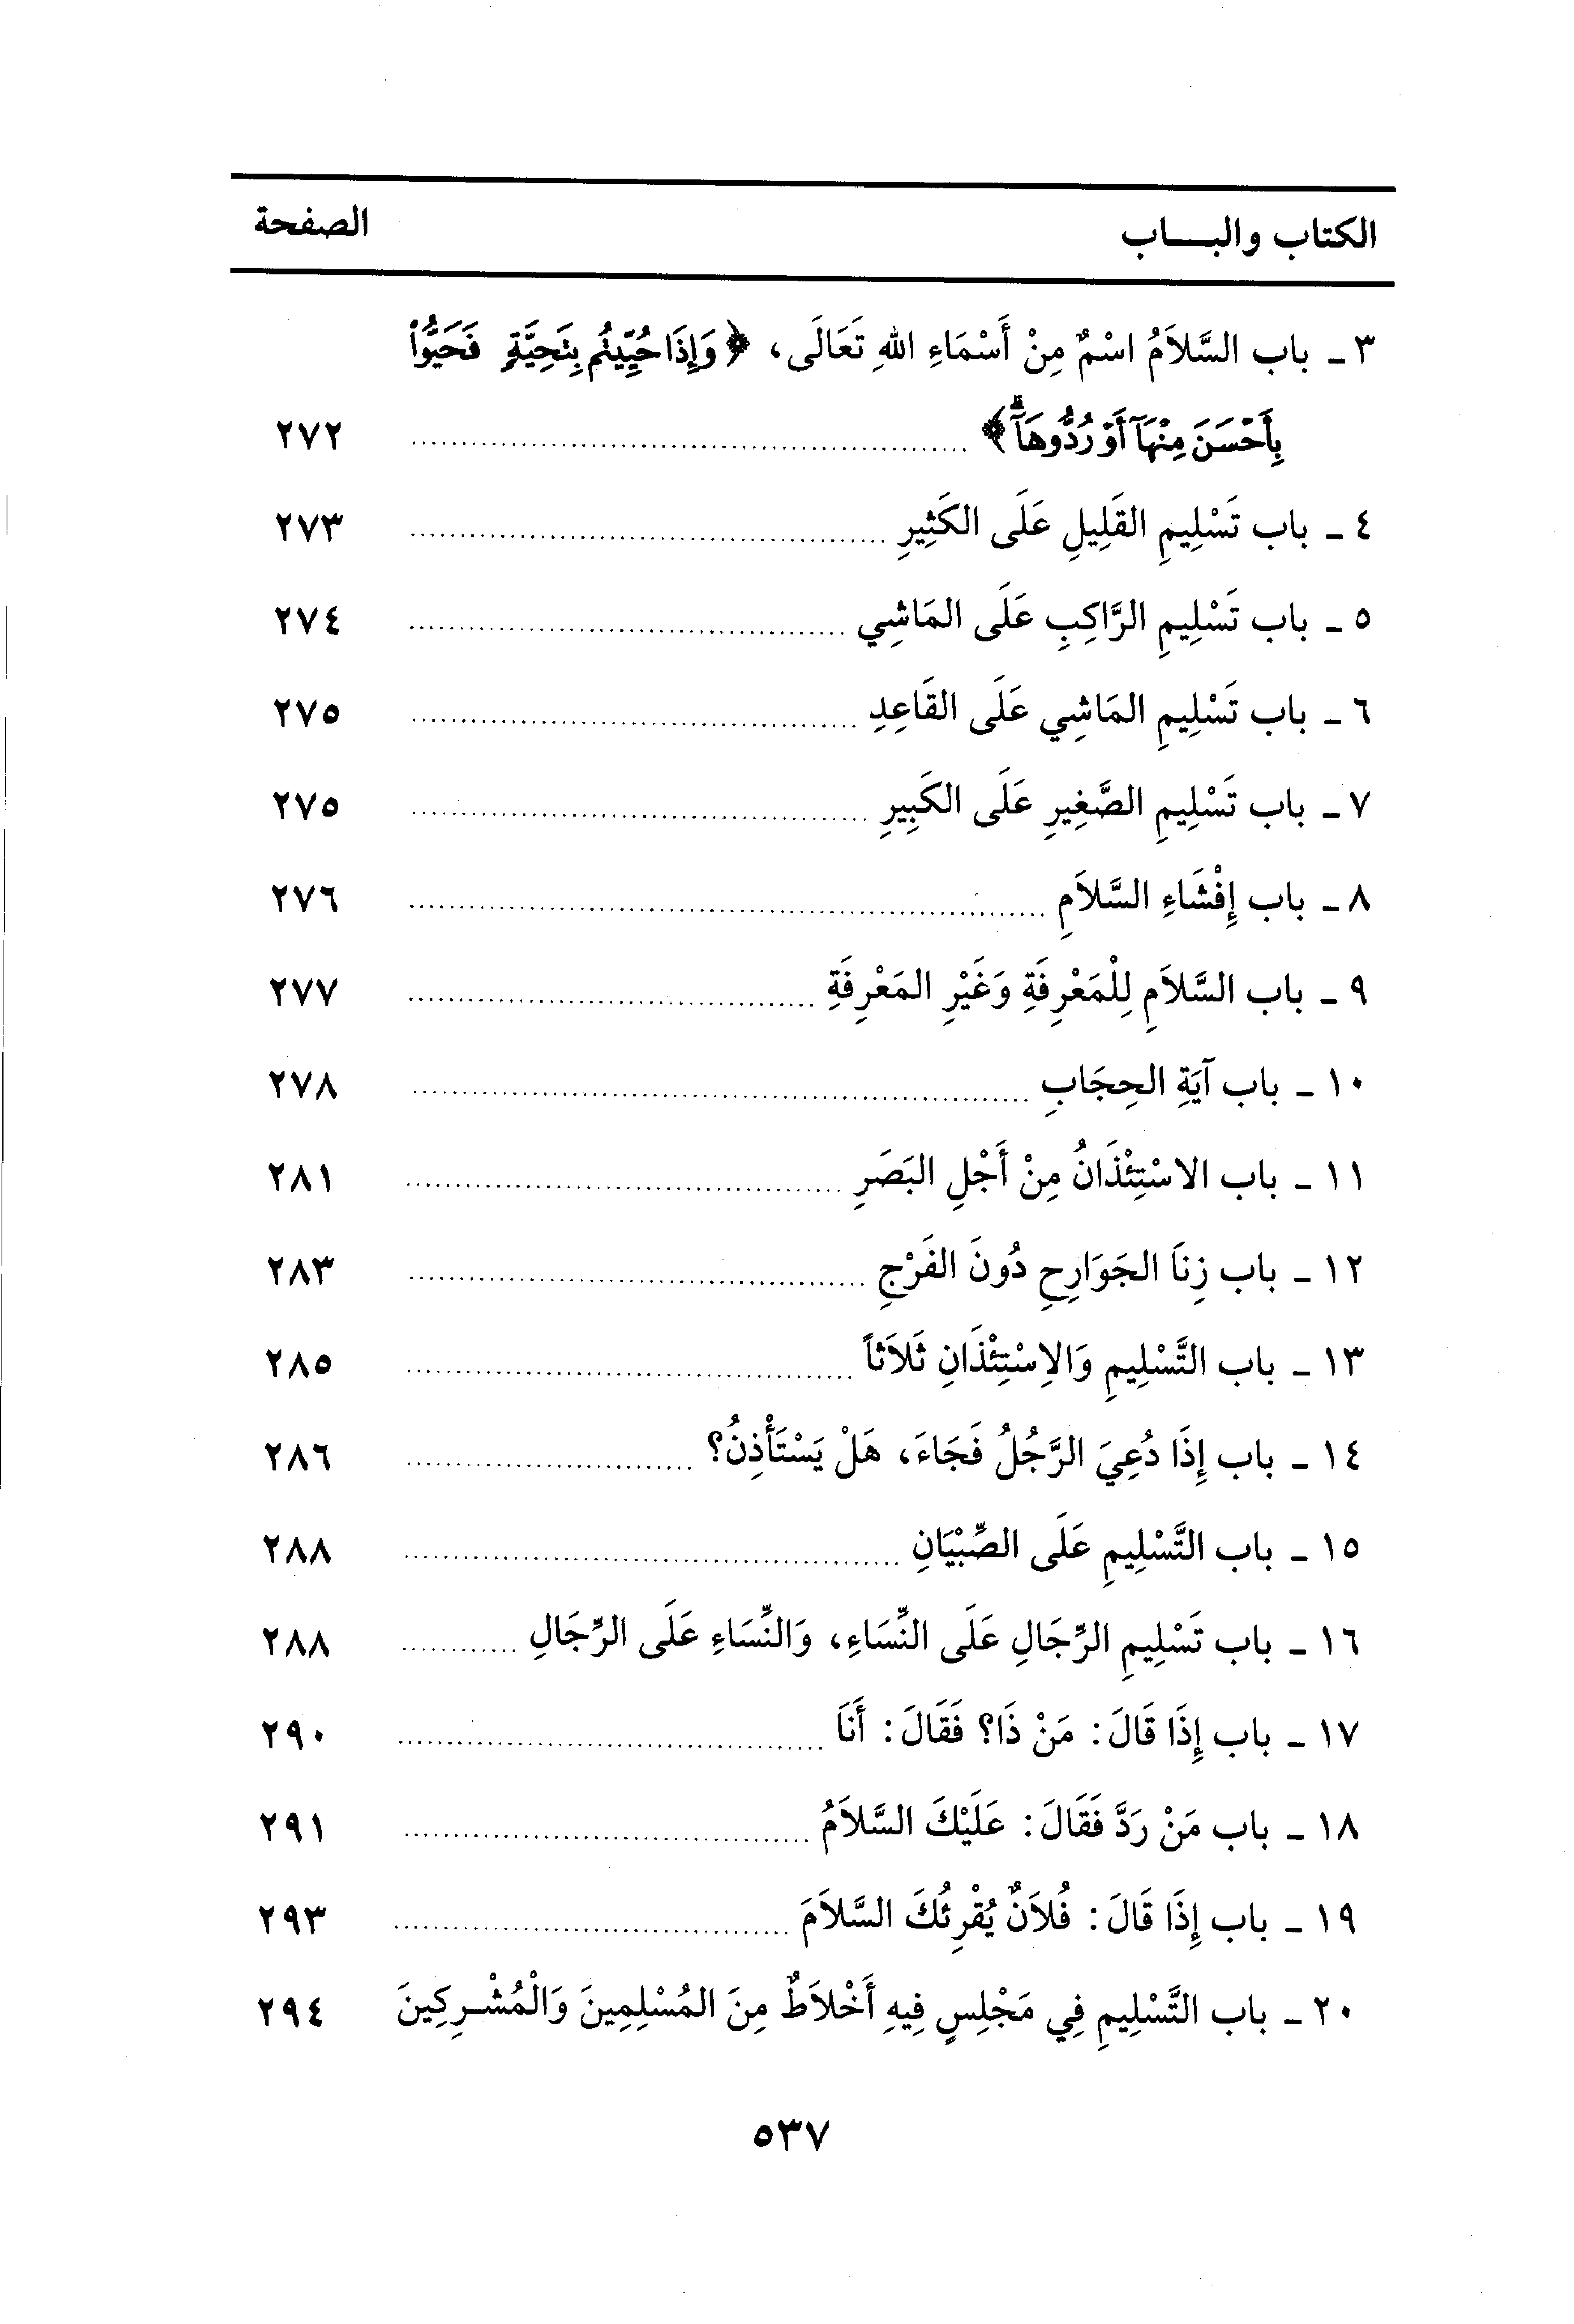 الكتاب والبـــاب الصفحة
٣ - باب السَّلاَمُ اسْمٌ مِنْ أَسْمَاءِ اللهِ تَعَالَى، ﴿وَإِذَا حُيِّيتُم بِتَحِيَّةٍ فَحَيُّوا۟
بِأَحْسَنَ مِنْهَآ أَوْ رُدُّوهَآۗ﴾ ........ ٢٧٢
٤ - باب تَسْلِيمِ القَلِيلِ عَلَى الكَثِيرِ ........ ٢٧٣
٥ - باب تَسْلِيمِ الرَّاكِبِ عَلَى المَاشِي ........ ٢٧٤
٦ - باب تَسْلِيمِ المَاشِي عَلَى القَاعِدِ ........ ٢٧٥
٧ - باب تَسْلِيمِ الصَّغِيرِ عَلَى الكَبِيرِ ........ ٢٧٥
٨ - باب إِفْشَاءِ السَّلاَمِ ........ ٢٧٦
٩ - باب السَّلاَمِ لِلْمَعْرِفَةِ وَغَيْرِ المَعْرِفَةِ ........ ٢٧٧
١٠ - باب آيَةِ الحِجَابِ ........ ٢٧٨
١١ - باب الاسْتِئْذَانُ مِنْ أَجْلِ البَصَرِ ........ ٢٨١
١٢ - باب زِنَا الجَوَارِحِ دُونَ الفَرْجِ ........ ٢٨٣
١٣ - باب التَّسْلِيمِ وَالاِسْتِئْذَانِ ثَلاَثاً ........ ٢٨٥
١٤ - باب إِذَا دُعِيَ الرَّجُلُ فَجَاءَ، هَلْ يَسْتَأْذِنُ؟ ........ ٢٨٦
١٥ - باب التَّسْلِيمِ عَلَى الصِّبْيَانِ ........ ٢٨٨
١٦ - باب تَسْلِيمِ الرِّجَالِ عَلَى النِّسَاءِ، وَالنِّسَاءِ عَلَى الرِّجَالِ ........ ٢٨٨
١٧ - باب إِذَا قَالَ: مَنْ ذَا؟ فَقَالَ: أَنَا ........ ٢٩٠
١٨ - باب مَنْ رَدَّ فَقَالَ: عَلَيْكَ السَّلاَمُ ........ ٢٩١
١٩ - باب إِذَا قَالَ: فُلاَنٌ يُقْرِئُكَ السَّلاَمَ ........ ٢٩٣
٢٠ - باب التَّسْلِيمِ فِي مَجْلِسٍ فِيهِ أَخْلاَطٌ مِنَ المُسْلِمِينَ وَالْمُشْـرِكِينَ ٢٩٤
٥٣٧